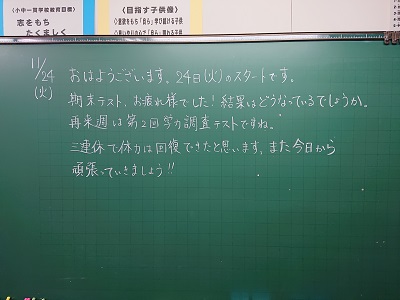 〈小中一貫学校教育目標〉
志をもち
たくましく
〈目指す子供像〉
◇意欲をもち「自ら」学び続ける子供
11/24
(火)
おはようございます。24日(火)のスタートです。
期末テスト、お疲れ様でした!結果はどうなっているでしょうか。
再来週は第2回学力調査テストですね。
三連休で体力は回復できたと思います。また今日から
頑張っていきましょう!!